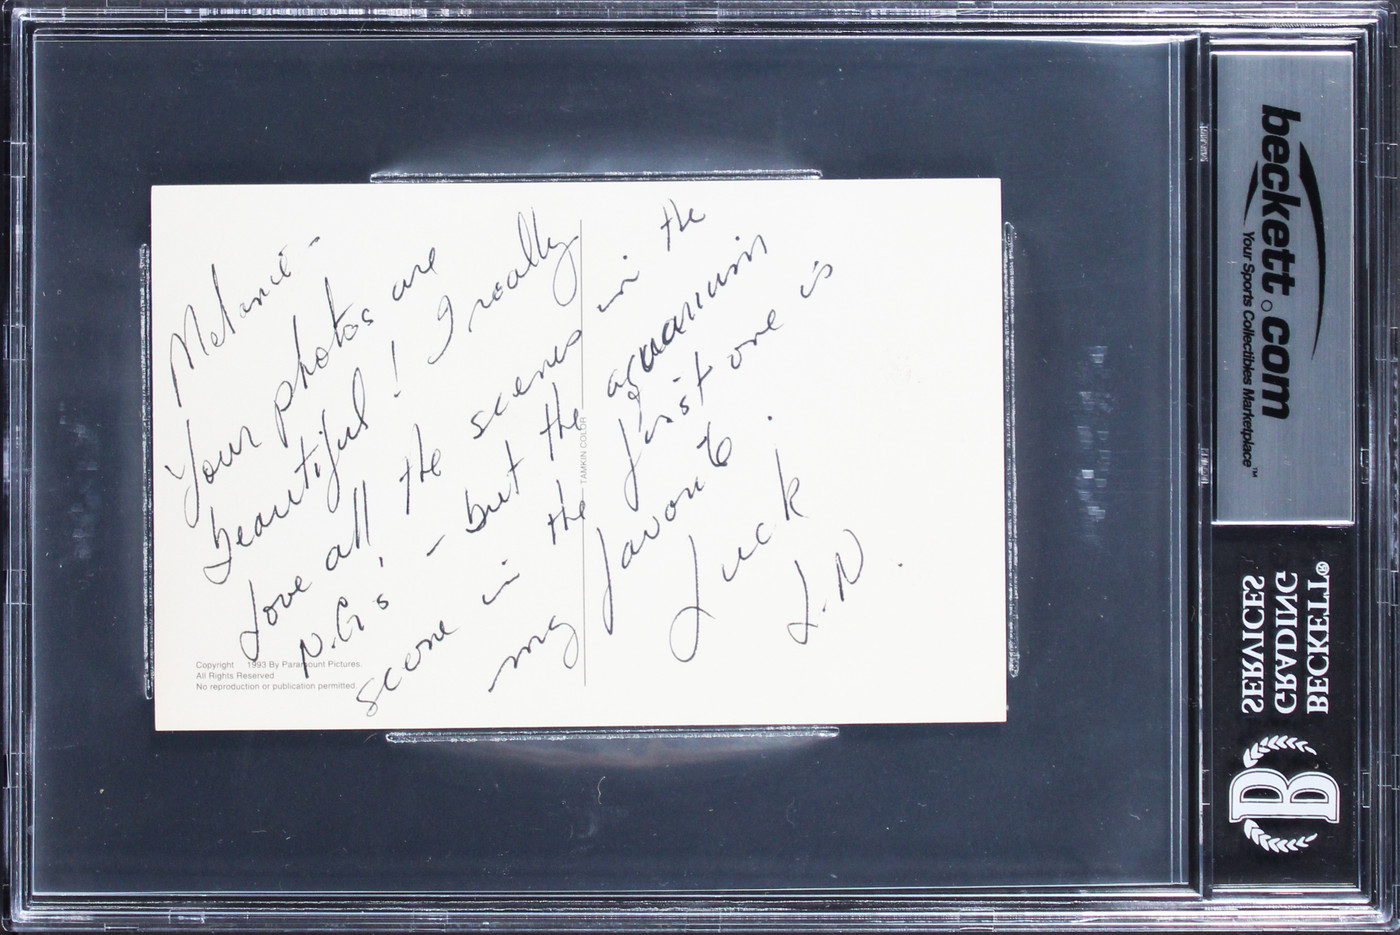 Melanie -
Your photos are
beautiful! I really
love all the scenes in the
N.G's - but the aquarium
scene in the first one is
my favorite.
Luck
L.N.
TAMKIN COLOR
Copyright 1993 By Paramount Pictures.
All Rights Reserved
No reproduction or publication permitted.
beckett.com
Your Sports Collectibles Marketplace™
BECKETT®
GRADING
SERVICES
B